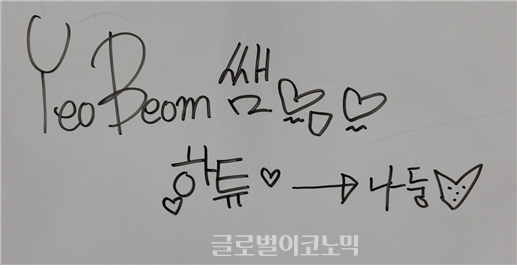 YeoBeom 쌤♡♡
하튜♡♡ → 나둠♡
글로벌이코노믹